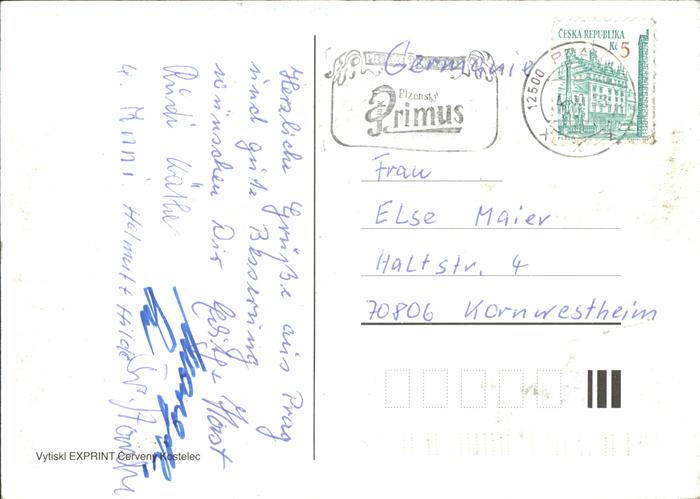 Herzliche Grüße aus Prag
und gute Besserung
wünschen Dir Horst
Rüdi Käthe
u. Helmut Hilde
Germanie
Plzenský
Primus
12500
ČESKÁ REPUBLIKA
Kč 5
Frau
Else Maier
Haltstr. 4
70806 Kornwestheim
Vytiskl EXPRINT Červený Kostelec